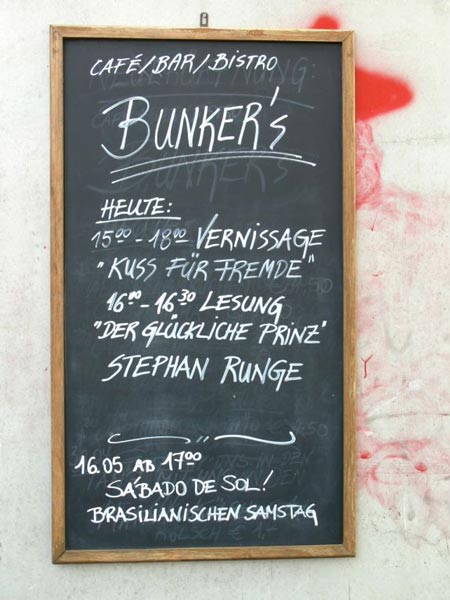 CAFÉ/BAR/BISTRO
BUNKER's
HEUTE:
15⁰⁰-18⁰⁰ VERNISSAGE
"KUSS FÜR FREMDE"
16⁰⁰-16³⁰ LESUNG
"DER GLÜCKLICHE PRINZ"
STEPHAN RUNGE
16.05 AB 17⁰⁰
SÁBADO DE SOL!
BRASILIANISCHEN SAMSTAG